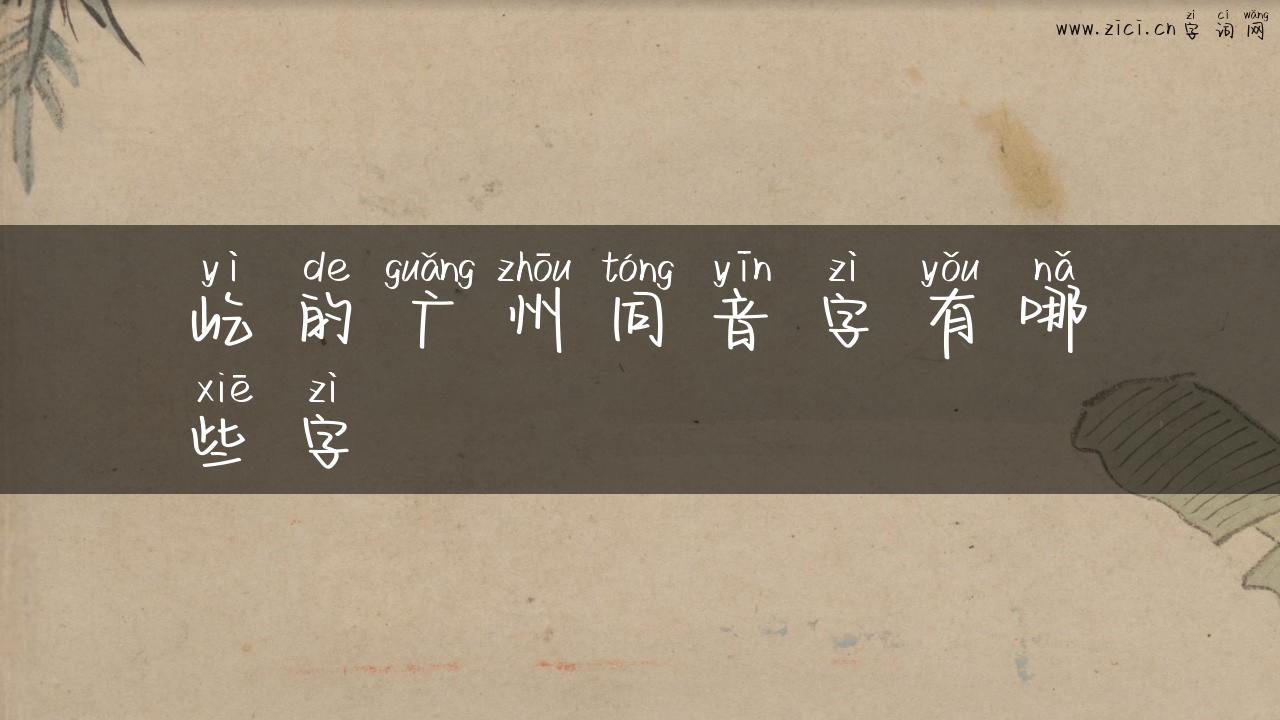 zì cí wǎng
www.zici.cn 字词网
yì de guǎng zhōu tóng yīn zì yǒu nǎ
屹的广州同音字有哪
xiē zì
些字